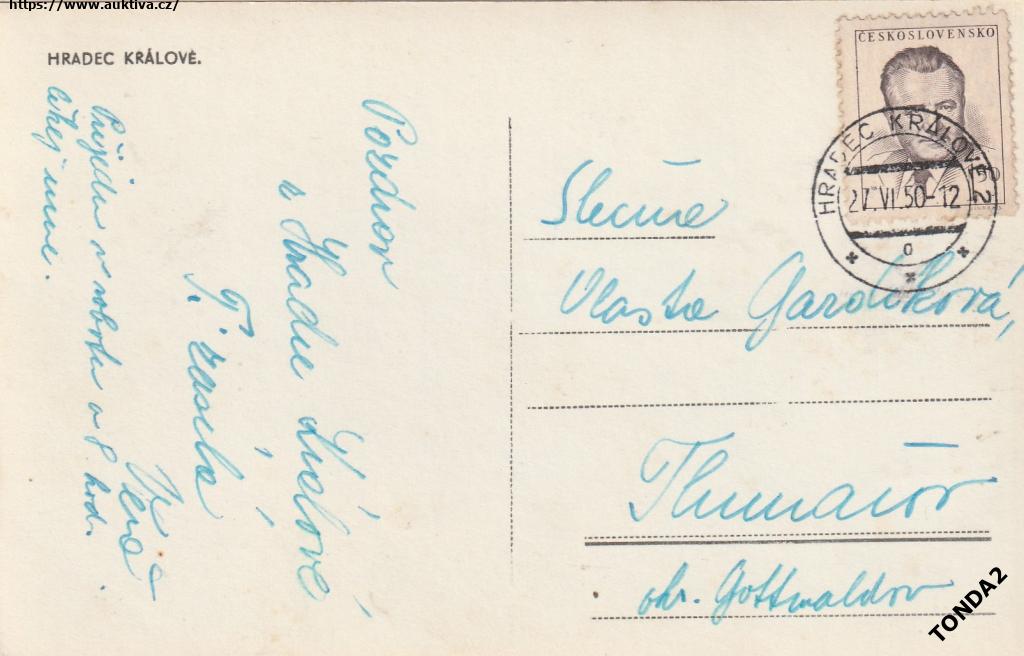 https://www.auktiva.cz/
HRADEC KRÁLOVÉ.
Pozdrav
z Hradce Králové
Ti zasílá
Věra
Přijedu v sobotu v 8 hod.
čekej mne.
ČESKOSLOVENSKO
HRADEC KRÁLOVÉ 2
27.VI.50-12
Slečna
Vlasta Gardíková,
Tlumačov
okr. Gottwaldov
TONDA2